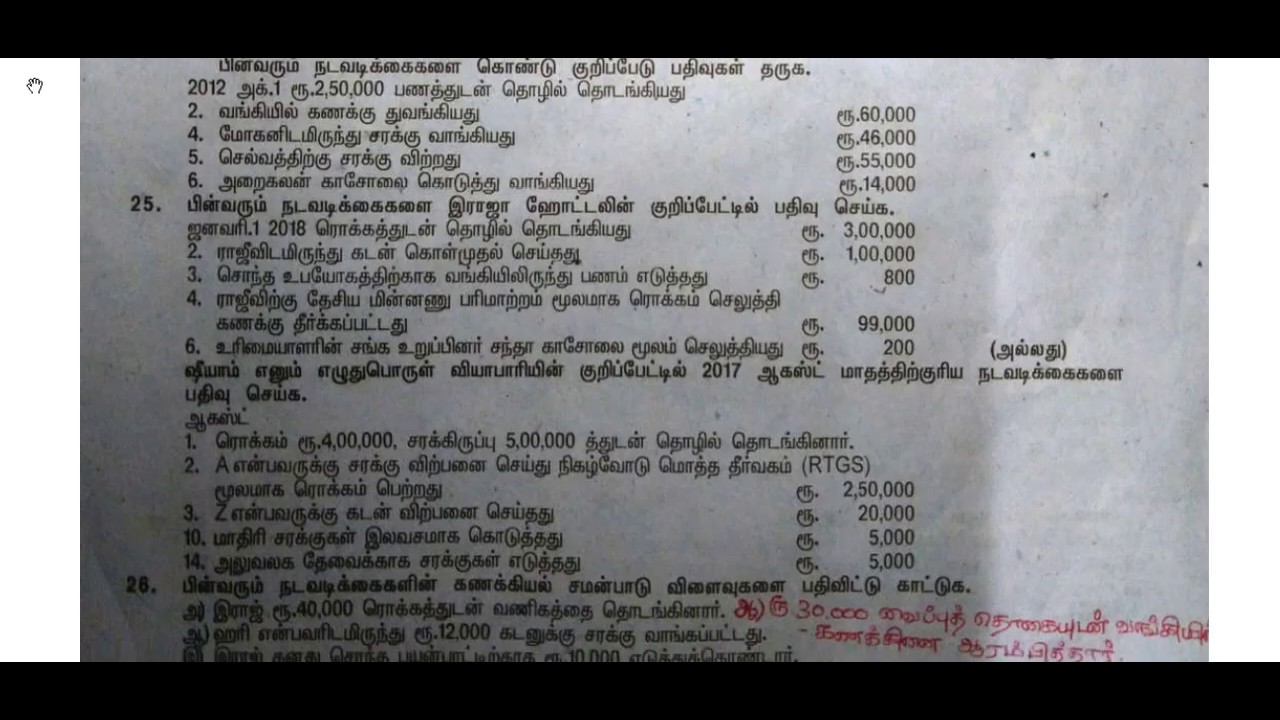 பின்வரும் நடவடிக்கைகளை கொண்டு குறிப்பேடு பதிவுகள் தருக.
2012 அக்.1 ரூ.2,50,000 பணத்துடன் தொழில் தொடங்கியது
2. வங்கியில் கணக்கு துவங்கியது ரூ.60,000
4. மோகனிடமிருந்து சரக்கு வாங்கியது ரூ.46,000
5. செல்வத்திற்கு சரக்கு விற்றது ரூ.55,000
6. அறைகலன் காசோலை கொடுத்து வாங்கியது ரூ.14,000
25. பின்வரும் நடவடிக்கைகளை இராஜா ஹோட்டலின் குறிப்பேட்டில் பதிவு செய்க.
ஜனவரி.1 2018 ரொக்கத்துடன் தொழில் தொடங்கியது ரூ. 3,00,000
2. ராஜீவிடமிருந்து கடன் கொள்முதல் செய்தது ரூ. 1,00,000
3. சொந்த உபயோகத்திற்காக வங்கியிலிருந்து பணம் எடுத்தது ரூ. 800
4. ராஜீவிற்கு தேசிய மின்னணு பரிமாற்றம் மூலமாக ரொக்கம் செலுத்தி
கணக்கு தீர்க்கப்பட்டது ரூ. 99,000
6. உரிமையாளரின் சங்க உறுப்பினர் சந்தா காசோலை மூலம் செலுத்தியது ரூ. 200 (அல்லது)
ஷீயாம் எனும் எழுதுபொருள் வியாபாரியின் குறிப்பேட்டில் 2017 ஆகஸ்ட் மாதத்திற்குரிய நடவடிக்கைகளை
பதிவு செய்க.
ஆகஸ்ட்
1. ரொக்கம் ரூ.4,00,000, சரக்கிருப்பு 5,00,000 த்துடன் தொழில் தொடங்கினார்.
2. A என்பவருக்கு சரக்கு விற்பனை செய்து நிகழ்வோடு மொத்த தீர்வகம் (RTGS)
மூலமாக ரொக்கம் பெற்றது ரூ. 2,50,000
3. Z என்பவருக்கு கடன் விற்பனை செய்தது ரூ. 20,000
10. மாதிரி சரக்குகள் இலவசமாக கொடுத்தது ரூ. 5,000
14. அலுவலக தேவைக்காக சரக்குகள் எடுத்தது ரூ. 5,000
26. பின்வரும் நடவடிக்கைகளின் கணக்கியல் சமன்பாடு விளைவுகளை பதிவிட்டு காட்டுக.
அ) இராஜ் ரூ.40,000 ரொக்கத்துடன் வணிகத்தை தொடங்கினார். ஆ) ரூ 30,000 வைப்புத் தொகையுடன் வங்கியில்
ஆ) ஹரி என்பவரிடமிருந்து ரூ.12,000 கடனுக்கு சரக்கு வாங்கப்பட்டது. - கணக்கினை ஆரம்பித்தார்.
இ) இராஜ் தனது சொந்த பயன்பாட்டிற்காக ரூ.10,000 எடுத்துக்கொண்டார்.